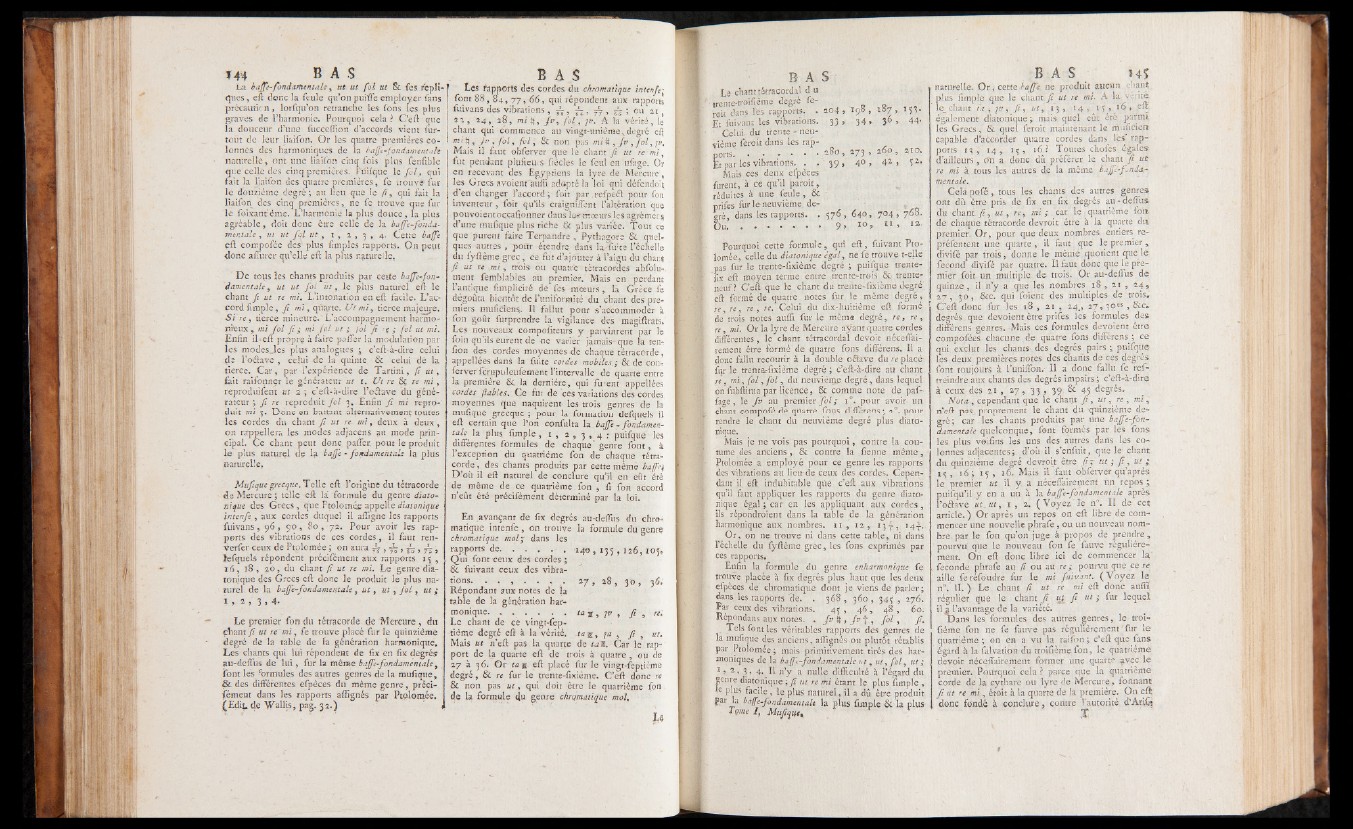 144 B A S
La basse-fondamentale, ut ut sol ut & ses répli-
ques, est donc la seule qu'on puisse employer sans
précaution, lorsqu'on retranche les sons les plus
graves de l'harmonie. Pourquoi cela? C'est que
la douceur d'une succession d'accords vient sur-
tout de leur liaison. Or les quatre premières co-
lonnes des harmoniques de la basse-fondamentale
naturelle, ont une liaison cinq fois plus sensible
que celle des cinq premières. Puisque le sol, qui
fait la liaison des quatre premières, se trouve sur
le douzième degré; au lieu que le si, qui fait la
liaison des cinq premières, ne se trouve que sur
le soixantième. L'harmonie la plus douce, la plus
agréable, doit donc être celle de la basse-fonda-
mentale, ut ut sol ut, 1, 2, 3, 4. Cette basse
est composée des plus simples rapports. On peut
donc assurer qu'elle est la plus naturelle.
De tous les chants produits par cette basse-fon-
damentale, ut ut sol ut, le plus naturel est le
chant si ut re mi. L'intonation en est facile. L'ac-
cord simple, si mi, quarte. Ut mi, tierce majeure.
Si re, tierce mineure. L'accompagnement harmo-
nieux, mi sol si; mi sol ut; sol si re; sol ut mi.
Enfin il est propre à faire passer la modulation par
les modes les plus analogues; c'est-à-dire celui
de l'octave, celui de la quinte & celui de la
tierce. Car, par l'expérience de Tartini, si ut,
fait raisonner le générateur ut 1. Ut re & re mi,
reproduisent ut 2; c'est-à-dire l'octave du géné-
rateur; si re reproduit sol 3. Enfin si mi repro-
duit mi 5. Donc en battant alternativement toutes
les cordes du chant si ut re mi, deux à deux,
on rappellera les modes adjacens au mode prin-
cipal. Ce chant peut donc passer pour le produit
le plus naturel de la basse-fondamentale la plus
naturelle.
Musique grecque. Telle est l'origine du tétracorde
de Mercure; telle est la formule du genre diato-
nique des Grecs, que Ptolomée appelle diatonique
intense, aux cordes duquel il assigne les rapports
suivans, 96, 90, 80, 72. Pour avoir les rap-
ports des vibrations de ces cordes, il faut ren-
verser ceux de Ptolomée; on aura
lesquels répondent précisément aux rapports 15,
16, 18, 20, du chant si ut re mi. Le genre dia-
tonique des Grecs est donc le produit le plus na-
turel de la basse-fondamentale, ut, ut, sol, ut;
1, 2, 3, 4.
Le premier son du tétracorde de Mercure, du
chant si ut re mi, se trouve placé sur le quinzième
degré de la table de la génération harmonique.
Les chants qui lui répondent de six en six degrés
au-dessus de lui, sur la même basse-fondamentale,
sont les formules des autres genres de la musique,
& des différentes espèces du même genre, préci-
sément dans les rapports assignés par Ptolomée.
(Edit. de Wallis, pag. 32.)
B A S
Les rapports des cordes du chromatique intense,
sont 88, 84, 77, 66, qui répondent aux rapports
suivans des vibrations, ; ou 21,
22, 24, 28, mi, fv, sol, jv. A la vérité, le
chant qui commence au vingt-unième degré est
mi, fv, sol, sol, & non pas mi, fv, sol, jv.
Mais il faut observer que le chant si ut re mi,
fut pendant plusieurs siècles le seul en usage. Or
en recevant des Egyptiens la lyre de Mercure,
les Grecs avoient aussi adopté la loi qui défendoit
d'en changer l'accord; soit par respect pour son
inventeur, soit qu'ils craignissent l'altération que
pouvoient occasionner dans les mœurs les agrémens
d'une musique plus riche & plus variée. Tout ce
que purent faire Terpandre, Pythagore & quel-
ques autres, pour étendre dans la suite l'échelle
du système grec, ce fut d'ajouter à l'aigu du chant
si ut re mi, trois ou quatre tétracordes absolu-
ment semblables au premier. Mais en perdant
l'antique simplicité de ses mœurs, la Grèce se
dégoûta bientôt de l'uniformité du chant des pre-
miers musiciens. Il fallut pour s'accommoder à
son goût surprendre la vigilance des magistrats.
Les nouveaux compositeurs y parvinrent par le
soin qu'ils eurent de ne varier jamais que la ten-
sion des cordes moyennes de chaque tétracorde,
appellées dans la suite cordes mobiles; & de con-
server scrupuleusement l'intervalle de quarte entre
la première & la dernière, qui furent appellées
cordes stables. Ce fut de ces variations des cordes
moyennes que naquirent les trois genres de la
musique grecque; pour la formation desquels il
est certain que l'on consulta la basse-fondamen-
tale la plus simple, 1, 2, 3, 4: puisque les
différentes formules de chaque genre sont, à
l'exception du quatrième son de chaque tétra-
corde, des chants produits par cette même basse;
D'où il est naturel de conclure qu'il en eût été
de même de ce quatrième son, si son accord
n'eût été précisément déterminé par la loi.
En avançant de six degrés au-dessus du chro-
matique intense, on trouve la formule du genre
chromatique mol; dans les
rapports de. . . . . . 140, 135, 126, 105,
Qui sont ceux des cordes;
& suivant ceux des vibra-
tions. . . . . . . . 27, 28, 30, 36.
Répondant aux notes de la
table de la génération har-
monique. . . . . . . ta, jv, si, re.
Le chant de ce vingt-sep-
tième degré est à la vérité, ta, ja, si, ut.
Mais ut n'est pas la quarte de ta. Car le rap-
port de la quarte est de trois à quatre, ou de
27 à 36. Or ta est placé sur le vingt-septième
degré, & re sur le trente-sixième. C'est donc re
& non pas ut, qui doit être le quatrième son
de la formule du genre chromatique mol.
Le
B A S
Le chant tétracordal du
trente-troisième degré se-
roit dans les rapports. . 204, 198, 187, 153.
Et suivant les vibrations. 33, 34, 36, 44.
Celui du trente-neu-
vième seroit dans les rap-
ports. . . . . . . . 280, 273, 260, 210.
Et par les vibrations. . . 39, 40, 42, 52.
Mais ces deux espèces
furent, à ce qu'il paroît,
réduites à une seule, &
prises sur le neuvième de-
gré, dans les rapports. . 576, 640, 704, 768.
Ou. . . . . . . . 9, 10, 11, 12.
Pourquoi cette formule, qui est, suivant Pto-
lomée, celle du diatonique égal, ne se trouve-t-elle
pas sur le trente-sixième degré; puisque trente-
six est moyen terme entre trente-trois & trente-
neuf? C'est que le chant du trente-sixième degré
est formé de quatre notes sur le même degré,
re, re, re, re. Celui du dix-huitième est formé
de trois notes aussi sur le même degré, re, re,
re, mi. Or la lyre de Mercure ayant quatre cordes
différentes, le chant tétracordal devoit nécessai-
rement être formé de quatre sons différens. Il a
donc fallu recourir à la double octave du re placé
sur le trente-sixième degré; c'est-à-dire au chant
re, mi, sol, sol, du neuvième degré, dans lequel
on substitua par licence, & comme note de pas-
sage, le fv au premier sol; 1°. pour avoir un
chant composé de quatre sons différens; 2°. pour
rendre le chant du neuvième degré plus diato-
nique.
Mais je ne vois pas pourquoi, contre la cou-
tume des anciens, & contre la sienne même,
Ptolomée a employé pour ce genre les rapports
des vibrations au lieu de ceux des cordes. Cepen-
dant il est indubitable que c'est aux vibrations
qu'il faut appliquer les rapports du genre diato-
nique égal; car en les appliquant aux cordes,
ils répondroient dans la table de la génération
harmonique aux nombres. 11, 12, 13, 14.
Or, on ne trouve ni dans cette table, ni dans
l'échelle du système grec, les sons exprimés par
ces rapports.
Enfin la formule du genre enharmonique se
trouve placée à six degrés plus haut que les deux
espèces de chromatique dont je viens de parler;
dans les rapports de. . 368, 360, 345, 276.
Par ceux des vibrations. 45, 46, 48, 60.
Répondans aux notes. . fv, fv, sol, si.
Tels sont les véritables rapports des genres de
la musique des anciens, assignés ou plutôt rétablis
par Ptolomée; mais primitivement tirés des har-
moniques de la basse-fondamentale ut, ut, sol, ut;
1, 2, 3, 4. Il n'y a nulle difficulté à l'égard du
genre diatonique; si ut re mi étant le plus simple,
le plus facile, le plus naturel, il a dû être produit
par la basse-fondamentale la plus simple & la plus
Tome I, Musique.
B A S 145
naturelle. Or, cette basse ne produit aucun chant
plus simple que le chant si ut re mi. A la vérité
le chant re, jv, si, ut, 13, 14, 15, 16, est
également diatonique; mais quel eût été parmi
les Grecs, & quel seroit maintenant le musicien
capable d'accorder quatre cordes dans les rap-
ports 13, 14, 15, 16? Toutes choses égales
d'ailleurs, on a donc dû préférer le chant si ut
re mi à tous les autres de la même basse-fonda-
mentale.
Cela posé, tous les chants des autres genres
ont dû être pris de six en six degrés au-dessus
du chant si, ut, re, mi; car le quatrième son
de chaque tétracorde devroit être à la quarte du
premier. Or, pour que deux nombres entiers re-
présentent une quarte, il faut que le premier,
divisé par trois, donne le même quotient que le
second divisé par quatre. Il faut donc que le pre-
mier soit un multiple de trois. Or au-dessus de
quinze, il n'y a que les nombres 18, 21, 24,
27, 30, &c. qui soient des multiples de trois.
C'est donc sur les 18, 21, 24, 27, 30es, &c.
degrés que devoient être prises les formules des
différens genres. Mais ces formules devoient être
composées chacune de quatre sons différens; ce
qui exclut les chants des degrés pairs; puisque
les deux premières notes des chants de ces degrés
sont toujours à l'unisson. Il a donc fallu se res-
treindre aux chants des degrés impairs; c'est-à-dire
à ceux des 21, 27, 33, 39 & 45 degrés.
Nota, cependant que le chant si, ut, re, mi,
n'est pas proprement le chant du quinzième de-
gré; car les chants produits par une basse-fon-
damentale quelconque, sont formés par les sons
les plus voisins les uns des autres dans les co-
lonnes adjacentes; d'où il s'ensuit, que le chant
du quinzième degré devroit être si; ut; si, ut;
15, 16; 15, 16. Mais il faut observer qu'après
le premier ut il y a nécessairement un repos;
puisqu'il y en a un à la basse-fondamentale après
l'octave ut, ut, 1, 2. (Voyez le n°. II. de cet
article.) Or après un repos on est libre de com-
mencer une nouvelle phrase, ou un nouveau nom-
bre par le son qu'on juge à propos de prendre,
pourvu que le nouveau son se sauve régulière-
ment. On est donc libre ici de commencer la
seconde phrase au si ou au re; pourvu que ce re
aille se résoudre sur le mi suivant. (Voyez le
n°. II.) Le chant si ut re mi est donc aussi
régulier que le chant si ut si ut; sur lequel
il a l'avantage de la variété.
Dans les formules des autres genres, le troi-
sième son ne se sauve pas régulièrement sur le
quatrième; on en a vu la raison; c'est que sans
égard à la salvation du troisième son, le quatrième
devoit nécessairement former une quarte avec le
premier. Pourquoi cela? parce que la quatrième
corde de la cythare ou lyre de Mercure, sonnant
si ut re mi, étoit à la quarte de la première. On est
donc fondé à conclure, contre l'autorité d'Aris-
T